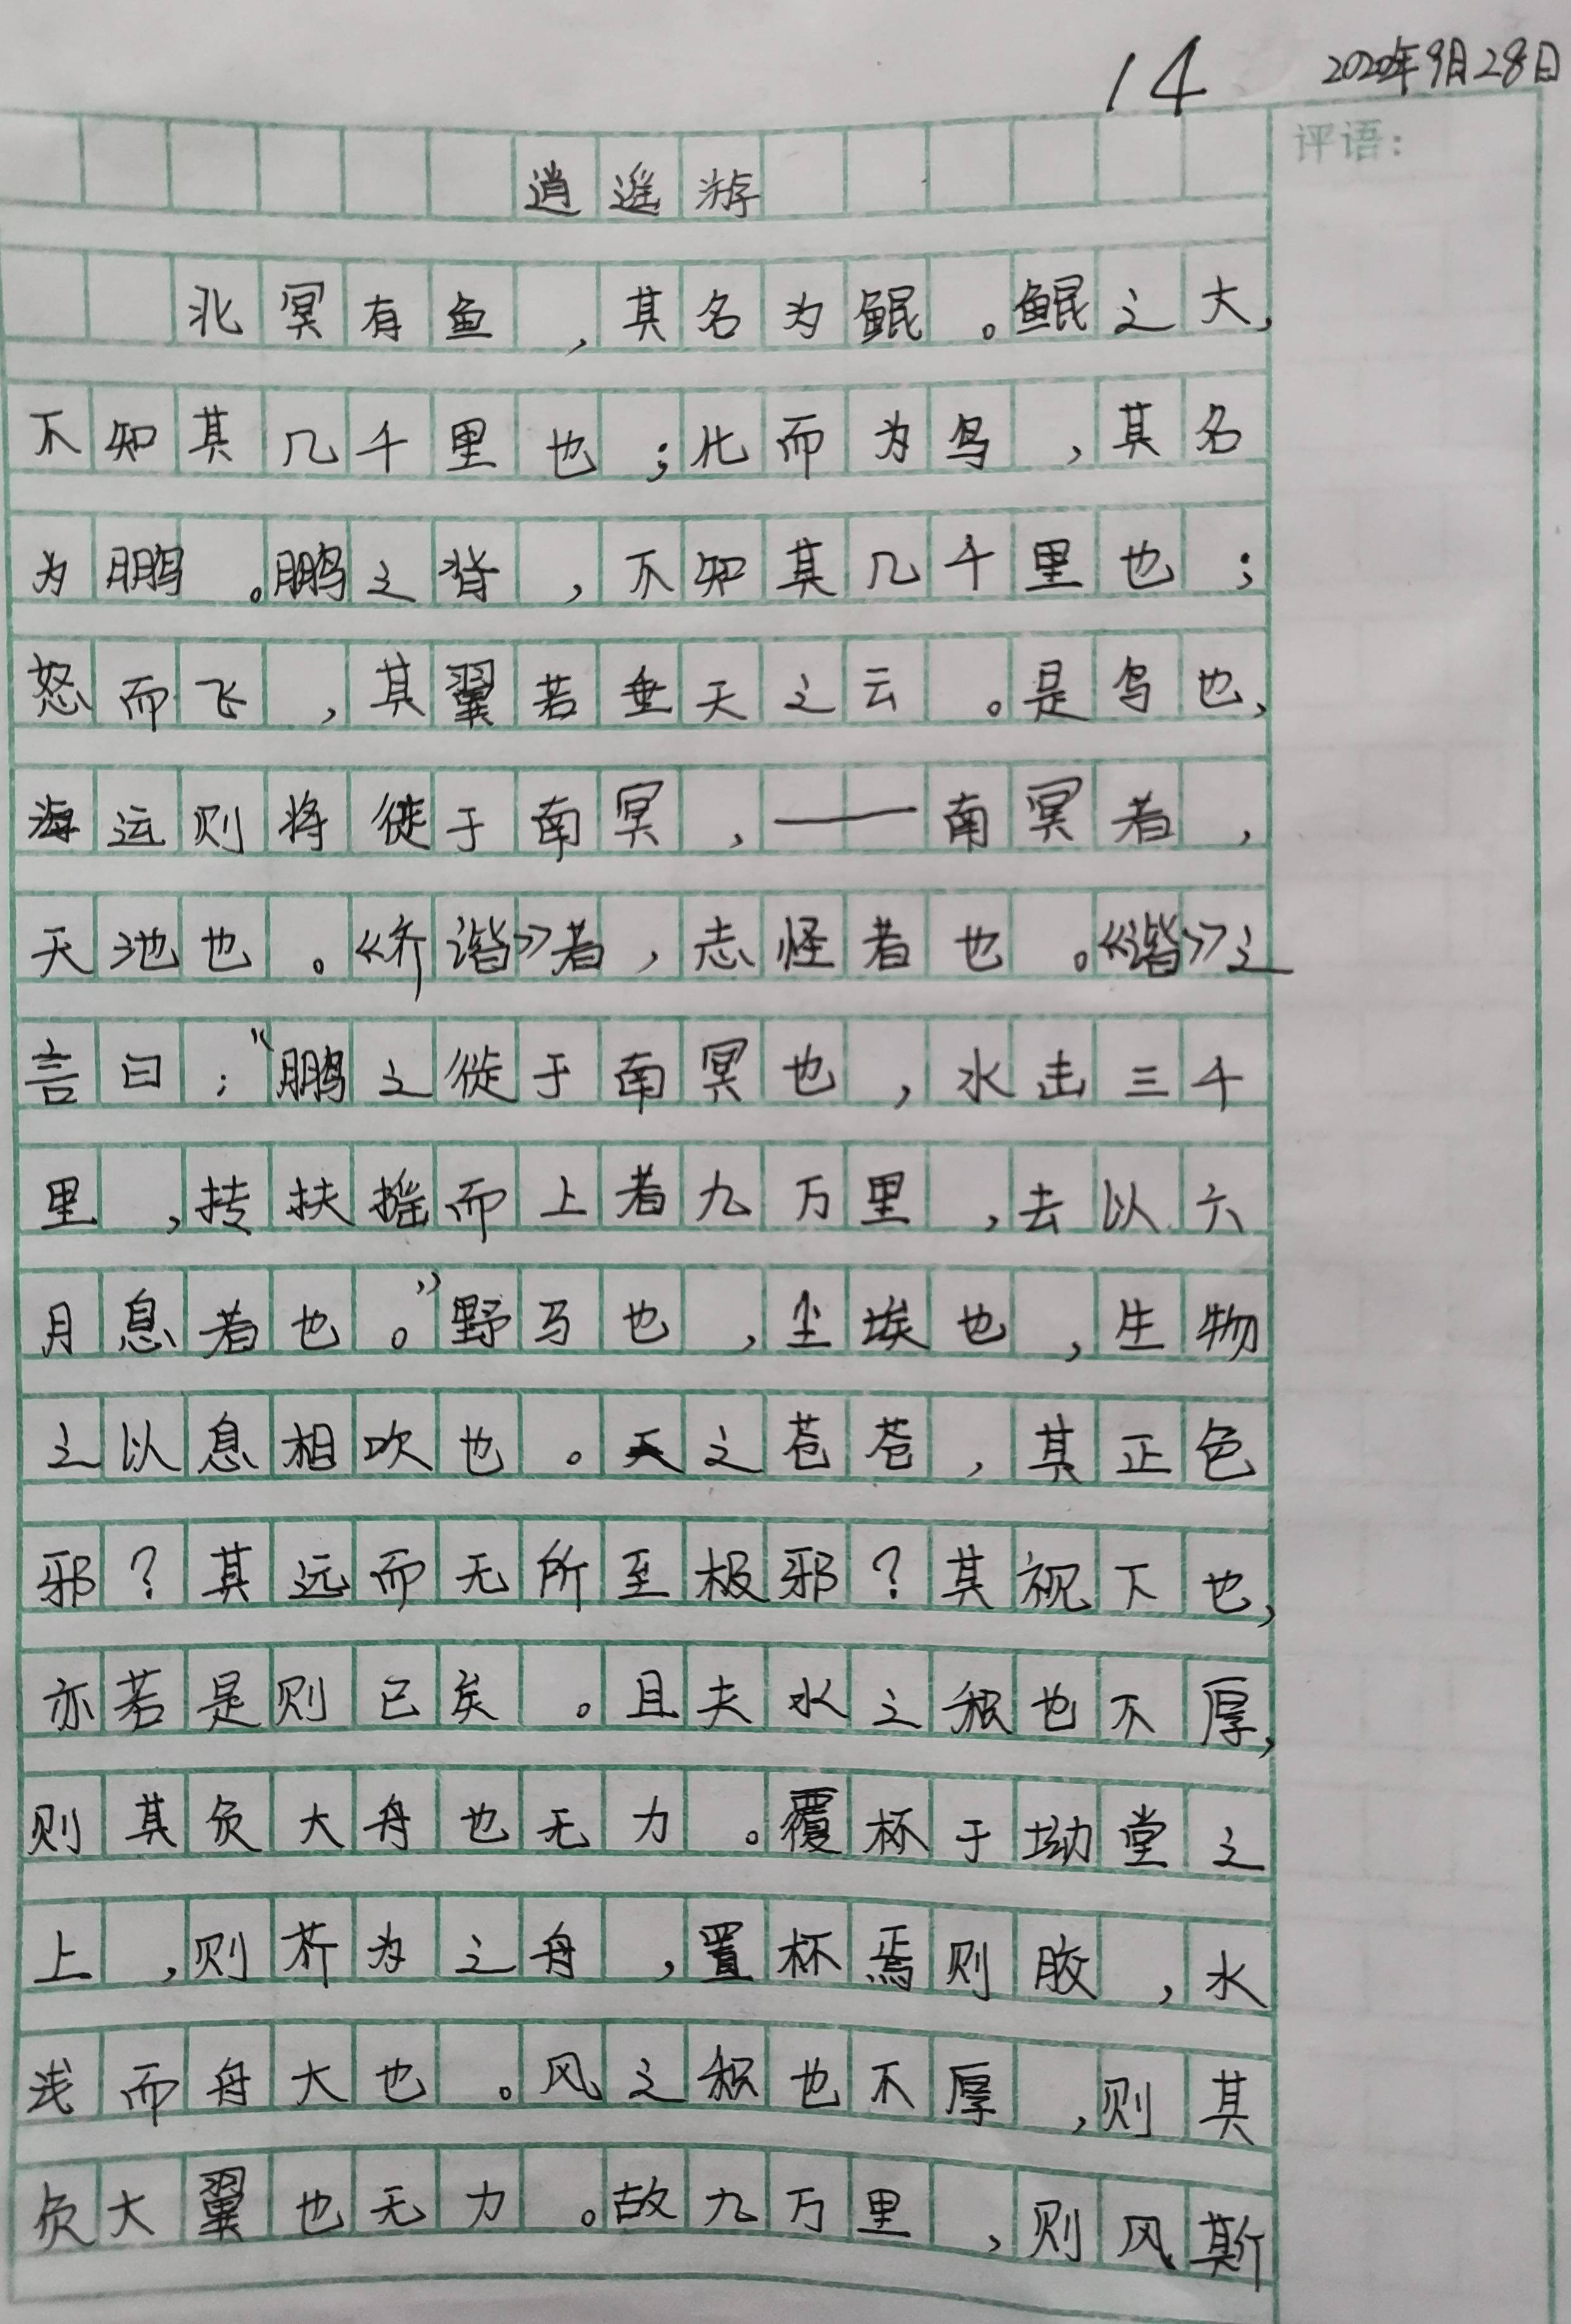 14
2020年9月28日
评语:
逍遥游
北冥有鱼,其名为鲲。鲲之大,
不知其几千里也;化而为鸟,其名
为鹏。鹏之背,不知其几千里也;
怒而飞,其翼若垂天之云。是鸟也,
海运则将徙于南冥,——南冥者,
天池也。《齐谐》者,志怪者也。《谐》之
言曰:“鹏之徙于南冥也,水击三千
里,抟扶摇而上者九万里,去以六
月息者也。”野马也,尘埃也,生物
之以息相吹也。天之苍苍,其正色
邪?其远而无所至极邪?其视下也,
亦若是则已矣。且夫水之积也不厚,
则其负大舟也无力。覆杯于坳堂之
上,则芥为之舟,置杯焉则胶,水
浅而舟大也。风之积也不厚,则其
负大翼也无力。故九万里,则风斯